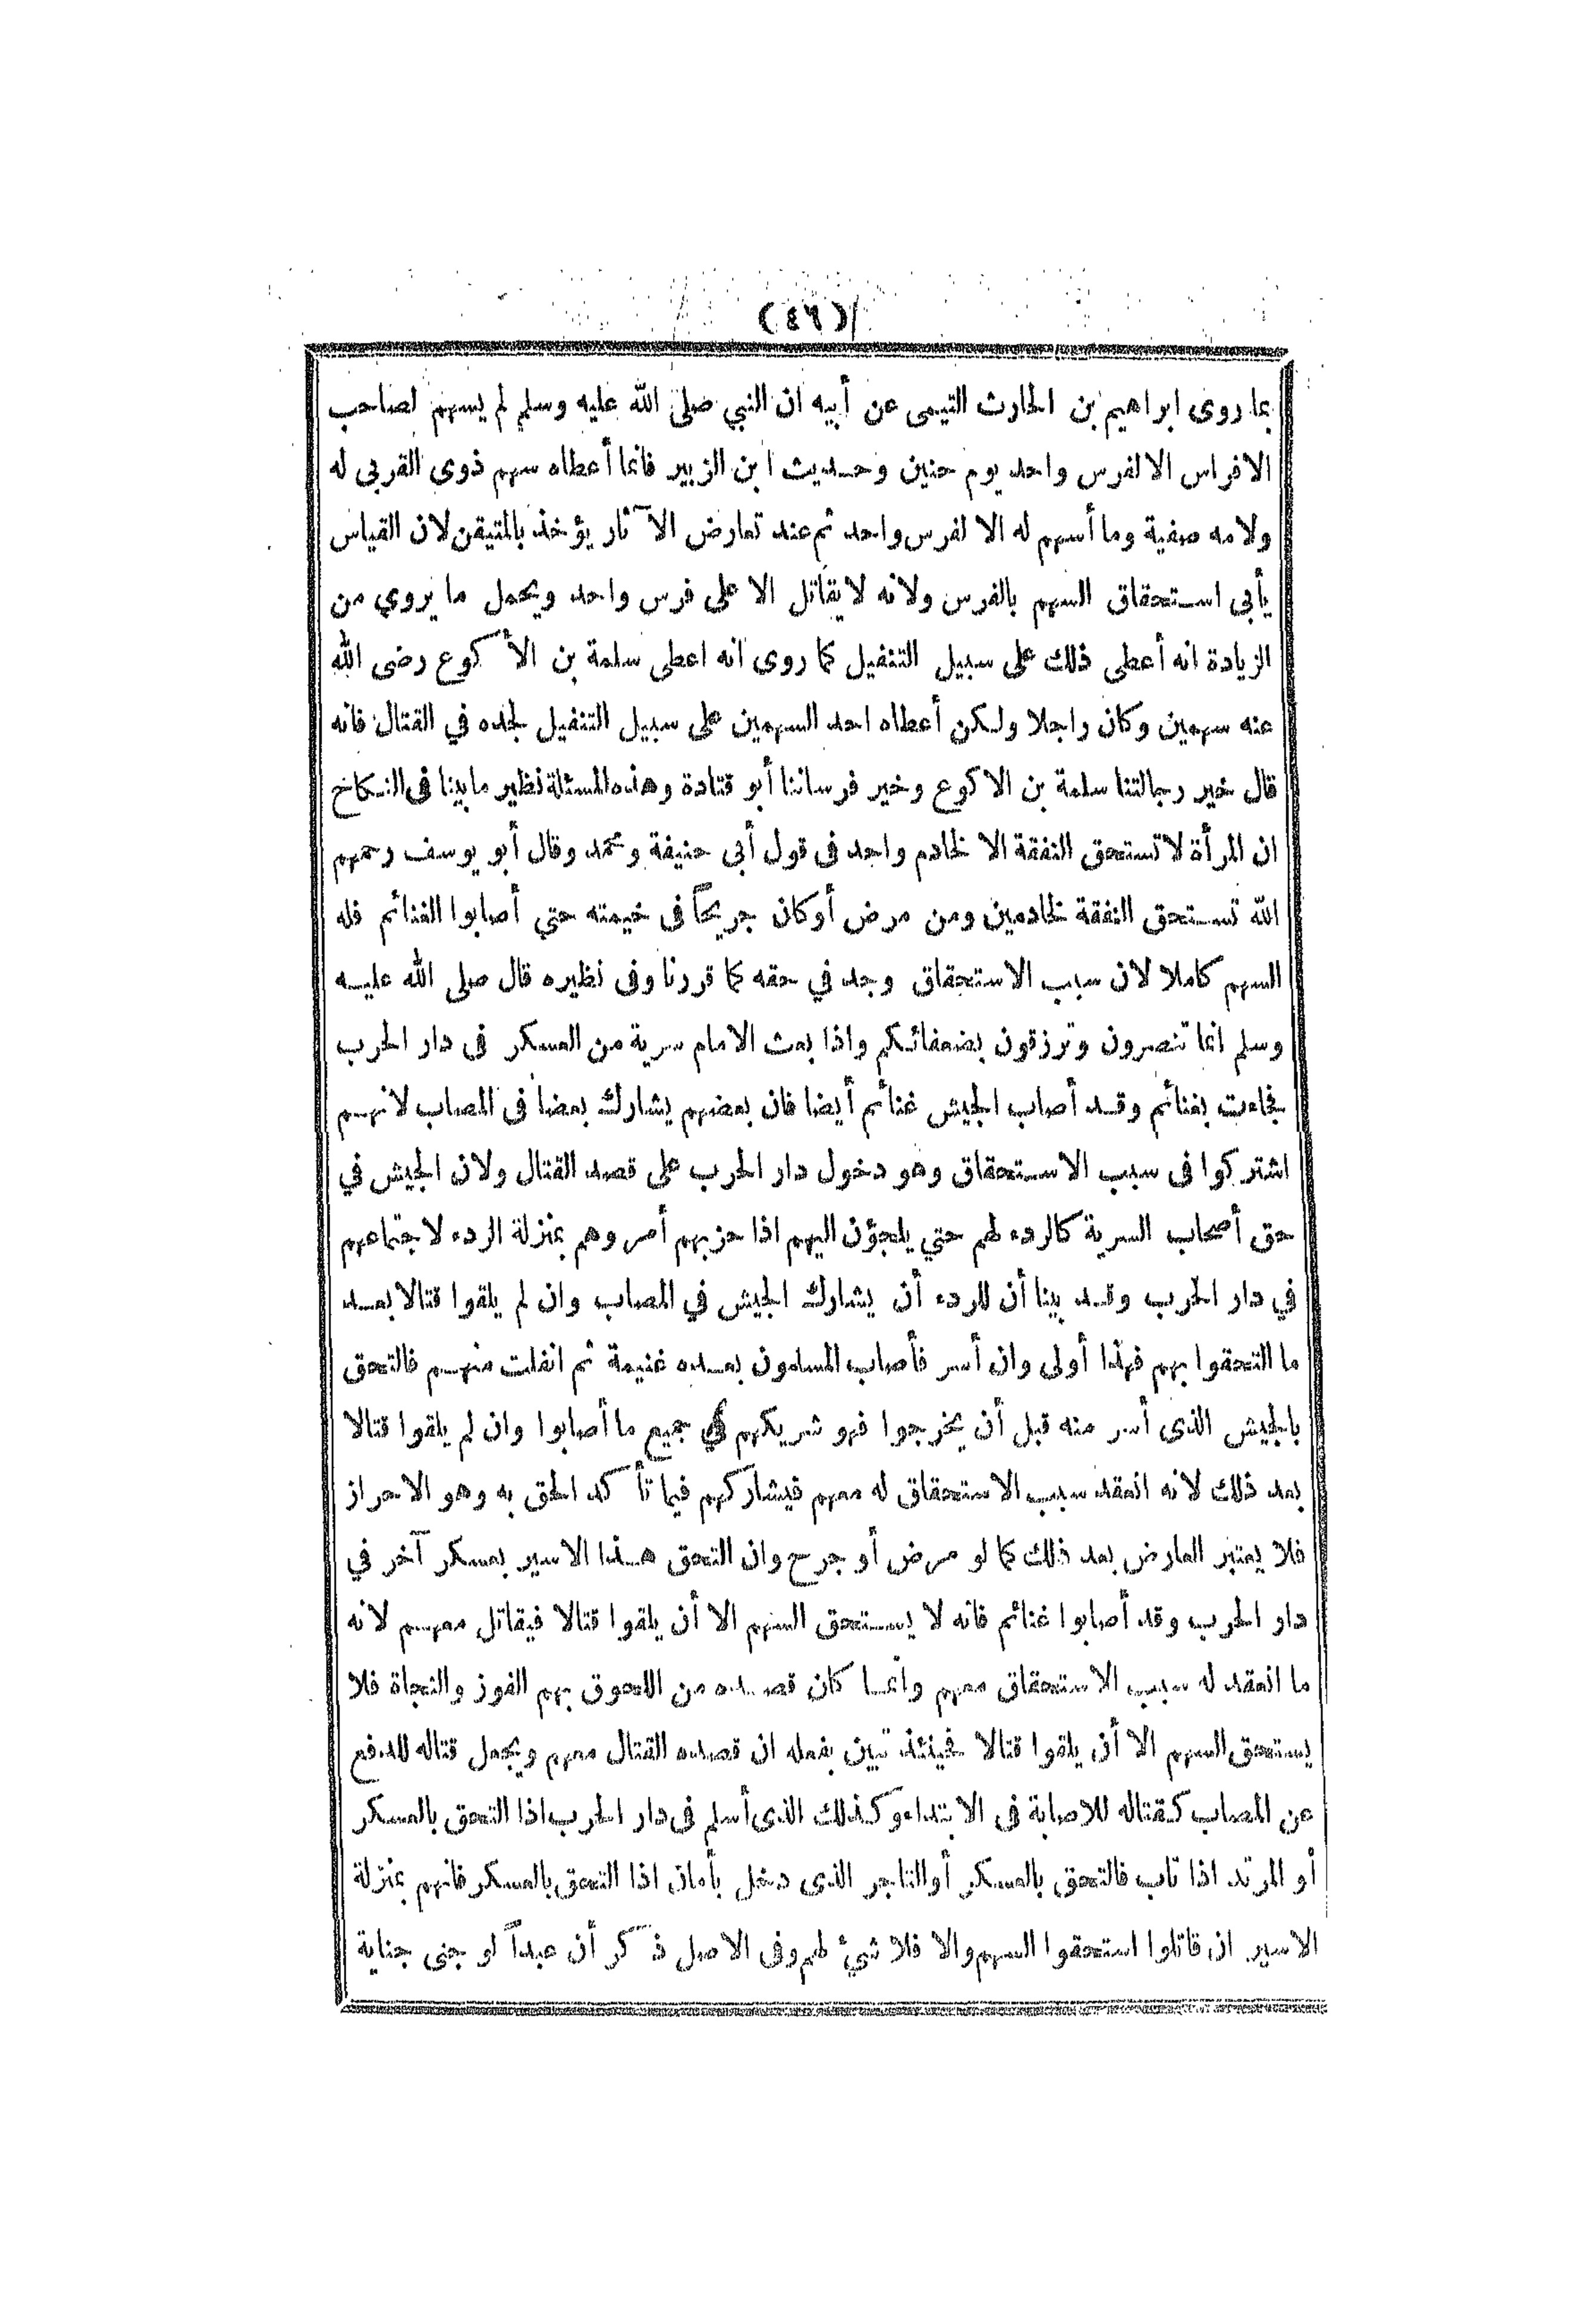 (٤٦)
بما روى ابراهيم بن الحارث التيمى عن أبيه ان النبي صلى الله عليه وسلم لم يسهم لصاحب
الافراس الا لفرس واحد يوم حنين وحديث ابن الزبير فانما أعطاه سهم ذوى القربى له
ولامه صفية وما أسهم له الا لفرس واحد ثم عند تعارض الآثار يؤخذ بالمتيقن لان القياس
يأبى استحقاق السهم بالفرس ولانه لا يقاتل الا على فرس واحد ويحمل ما يروي من
الزيادة انه أعطى ذلك على سبيل التنفيل كما روى انه اعطى سلمة بن الأكوع رضى الله
عنه سهمين وكان راجلا ولكن أعطاه احد السهمين على سبيل التنفيل لجده في القتال فانه
قال خير رجالتنا سلمة بن الاكوع وخير فرساننا أبو قتادة وهذه المسئلة نظير ما بينا فى النكاح
ان المرأة لا تستحق النفقة الا لخادم واحد فى قول أبى حنيفة ومحمد وقال أبو يوسف رحمهم
الله تستحق النفقة لخادمين ومن مرض أو كان جريحاً فى خيمته حتي أصابوا الغنائم فله
السهم كاملا لان سبب الاستحقاق وجد في حقه كما قررنا وفى نظيره قال صلى الله عليه
وسلم انما تنصرون وترزقون بضعفائكم واذا بعث الامام سرية من العسكر فى دار الحرب
فجاءت بغنائم وقد أصاب الجيش غنائم أيضا فان بعضهم يشارك بعضا فى المصاب لانهم
اشتركوا فى سبب الاستحقاق وهو دخول دار الحرب على قصد القتال ولان الجيش في
حق أصحاب السرية كالردء لهم حتي يلجؤن اليهم اذا حزبهم أمر وهم بمنزلة الردء لاجتماعهم
في دار الحرب وقد بينا أن للردء أن يشارك الجيش في المصاب وان لم يلقوا قتالا بعد
ما التحقوا بهم فهذا أولى وان أسر فأصاب المسلمون بعده غنيمة ثم انفلت منهم فالتحق
بالجيش الذى أسر منه قبل أن يخرجوا فهو شريكهم في جميع ما أصابوا وان لم يلقوا قتالا
بعد ذلك لانه انعقد سبب الاستحقاق له معهم فيشاركهم فيما تأكد الحق به وهو الاحراز
فلا يعتبر العارض بعد ذلك كما لو مرض أو جرح وان التحق هذا الاسير بعسكر آخر في
دار الحرب وقد أصابوا غنائم فانه لا يستحق السهم الا أن يلقوا قتالا فيقاتل معهم لانه
ما انعقد له سبب الاستحقاق معهم وانما كان قصده من اللحوق بهم الفوز والنجاة فلا
يستحق السهم الا أن يلقوا قتالا فحينئذ تبين بفعله ان قصده القتال معهم ويجعل قتاله للدفع
عن المصاب كقتاله للاصابة فى الابتداء وكذلك الذى أسلم فى دار الحرب اذا التحق بالعسكر
أو المرتد اذا تاب فالتحق بالعسكر أو التاجر الذى دخل بأمان اذا التحق بالعسكر فانهم بمنزلة
الاسير ان قاتلوا استحقوا السهم والا فلا شيء لهم وفى الاصل ذكر أن عبداً لو جنى جناية